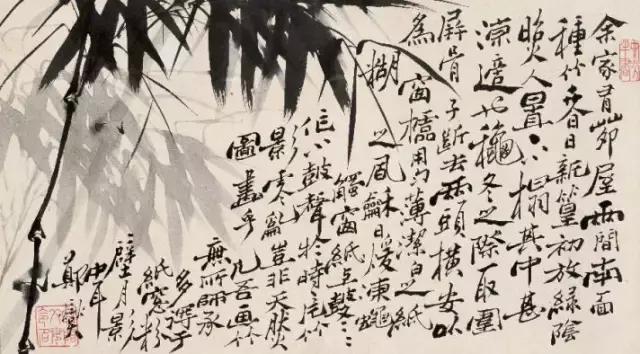 余家有茆屋兩間南面
種竹夏日新篁初放綠陰
照人置小榻其中甚
涼適也秋冬之際取圍
屏骨子断去兩頭橫安以
為窗櫺用勻薄潔白之紙
糊之風龢日煖凍蠅
觸窗紙上鼕
作小鼓聲於時一片竹
影零亂豈非天然
圖畫乎凡吾画竹
無所師承
多得于
紙窓粉
壁月影
中耳
鄭燮